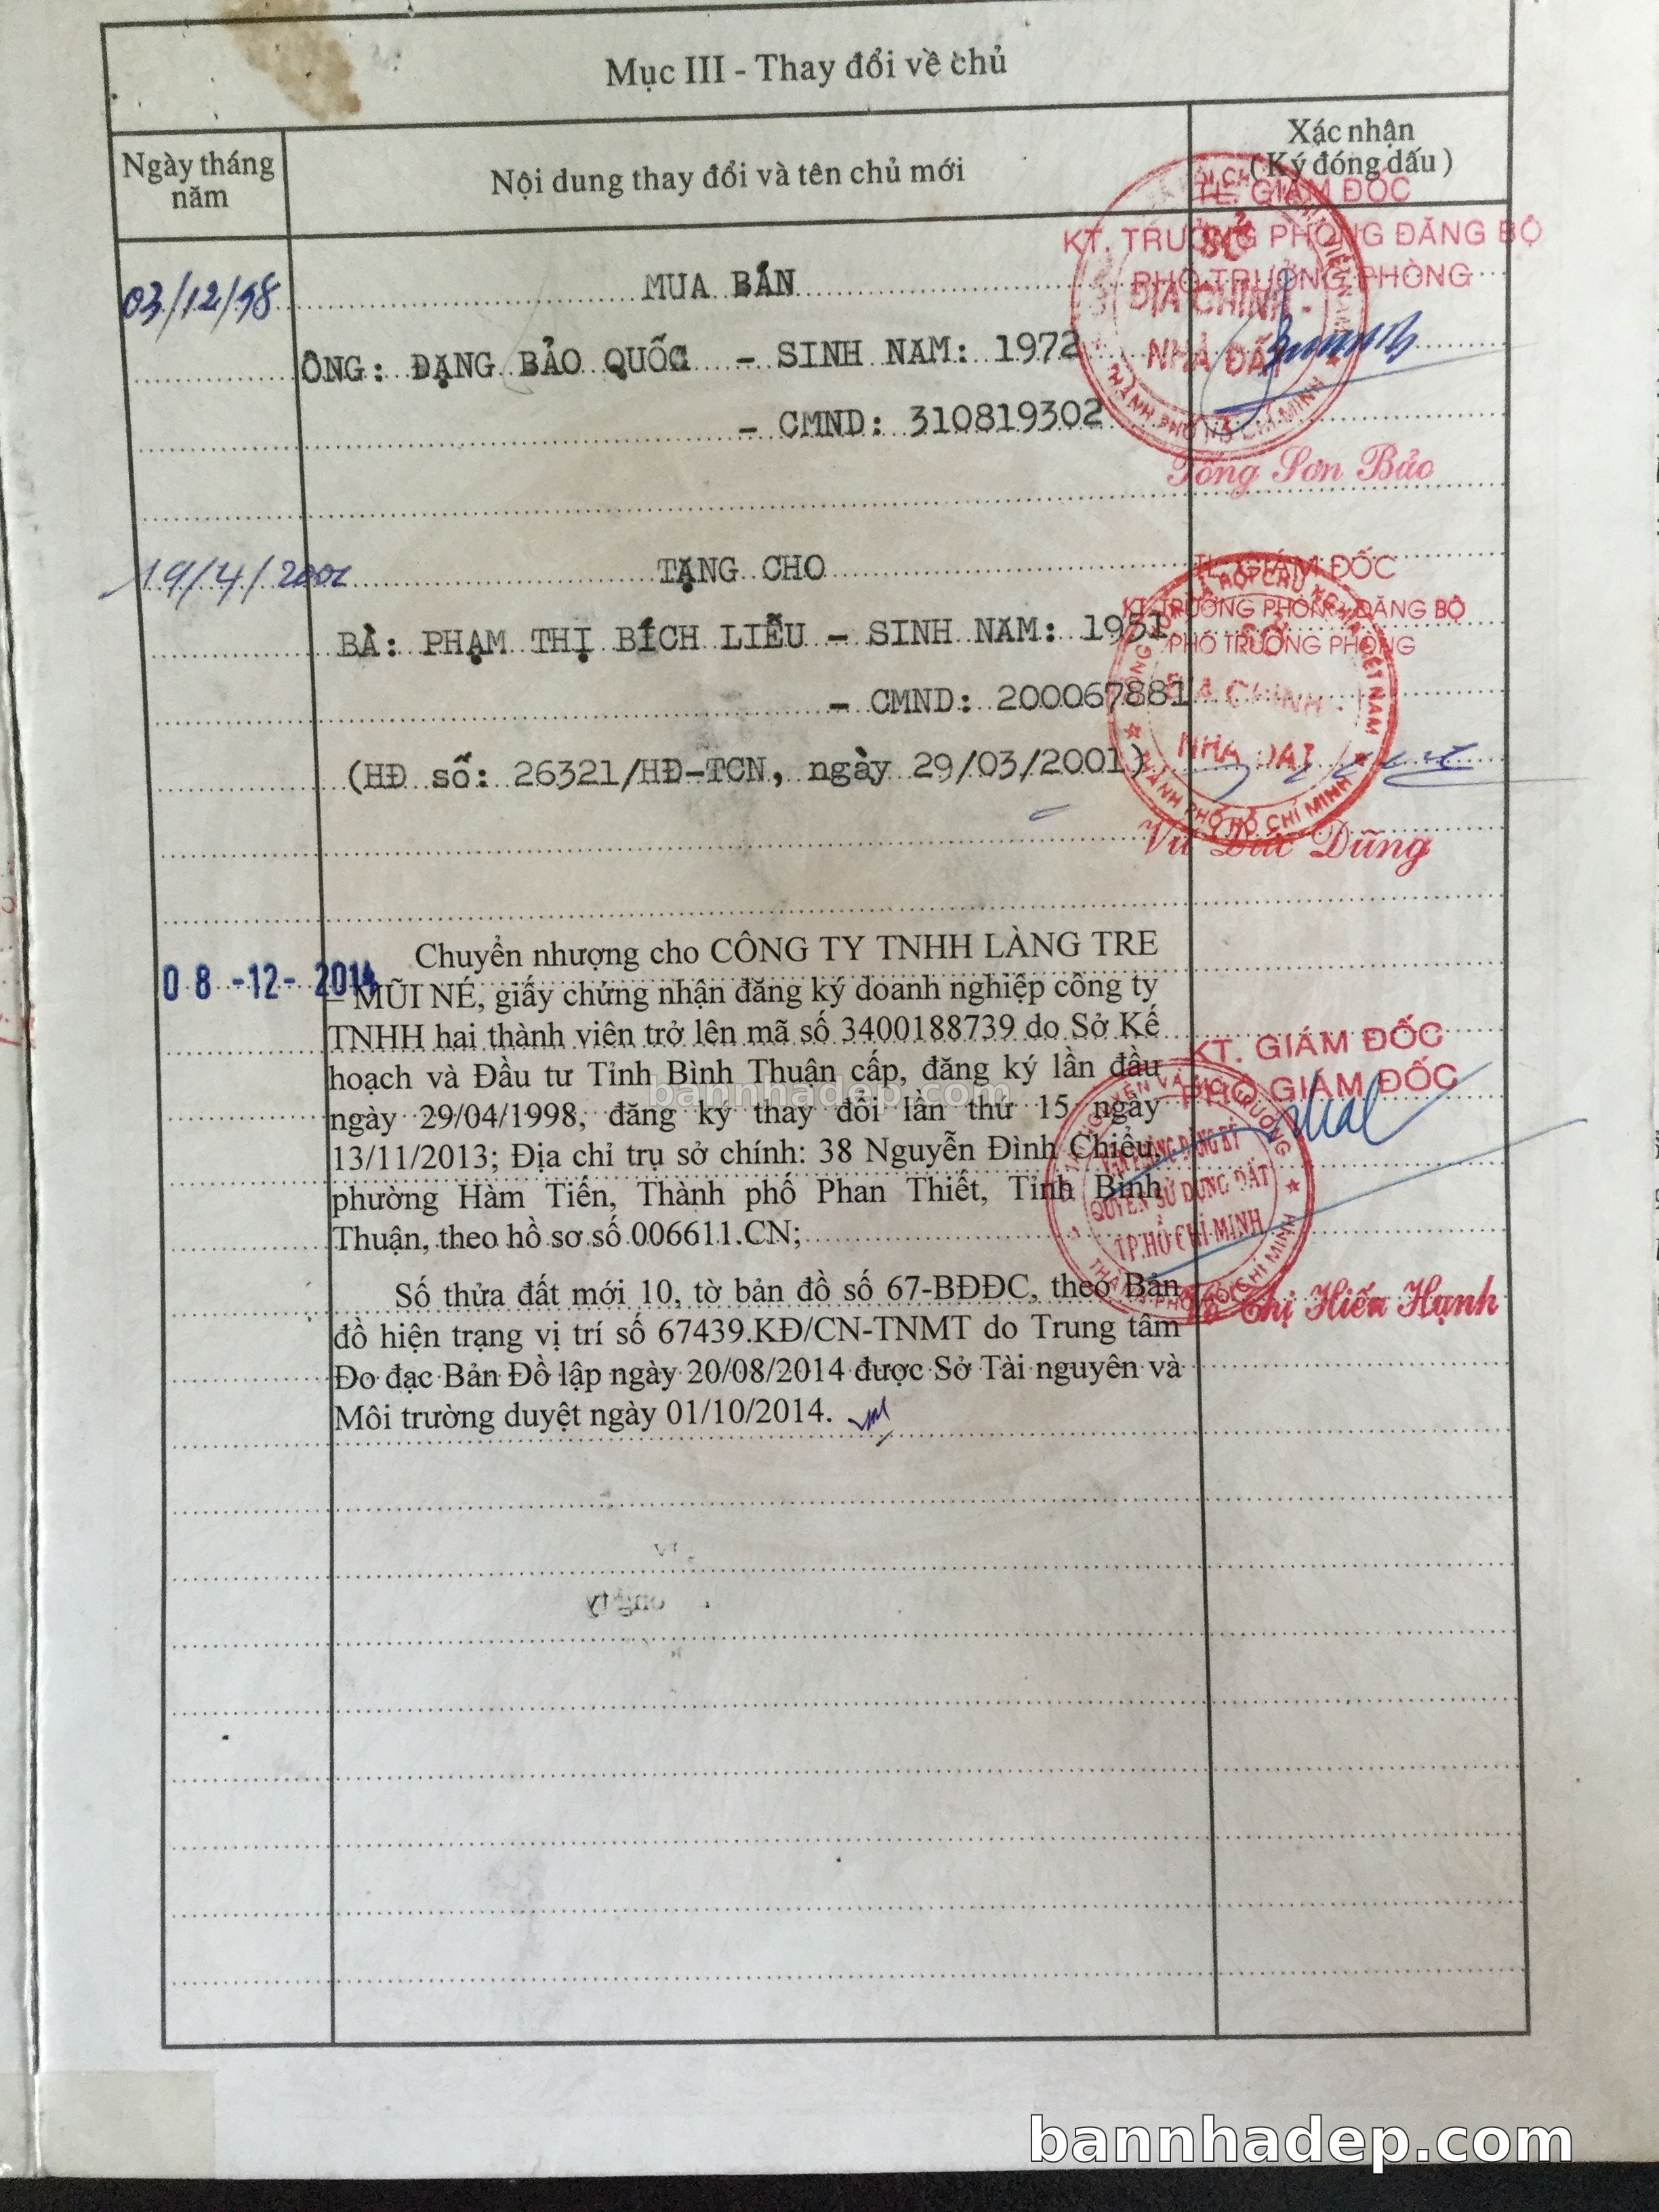 Mục III - Thay đổi về chủ
Ngày tháng năm
Nội dung thay đổi và tên chủ mới
Xác nhận
(Ký đóng dấu)
TL. GIÁM ĐỐC
KT. TRƯỞNG PHÒNG ĐĂNG BỘ
PHÓ TRƯỞNG PHÒNG
03/12/98
MUA BÁN
ÔNG: ĐẶNG BẢO QUỐC - SINH NAM: 1972
- CMND: 310819302
SỞ
ĐỊA CHÍNH -
NHÀ ĐẤT
THÀNH PHỐ HỒ CHÍ MINH
Tống Sơn Bảo
19/4/
TẶNG CHO
TL. GIÁM ĐỐC
KT. TRƯỞNG PHÒNG ĐĂNG BỘ
PHÓ TRƯỞNG PHÒNG
BÀ: PHẠM THỊ BÍCH LIỄU - SINH NAM: 1951
- CMND: 200067881
(HĐ số: 26321/HĐ-TCN, ngày 29/03/2001)
ĐỊA CHÍNH -
NHÀ ĐẤT
THÀNH PHỐ HỒ CHÍ MINH
Vũ Đức Dũng
08-12-2014
Chuyển nhượng cho CÔNG TY TNHH LÀNG TRE
MŨI NÉ, giấy chứng nhận đăng ký doanh nghiệp công ty
TNHH hai thành viên trở lên mã số 3400188739 do Sở Kế
hoạch và Đầu tư Tỉnh Bình Thuận cấp, đăng ký lần đầu
ngày 29/04/1998, đăng ký thay đổi lần thứ 15 ngày
13/11/2013; Địa chỉ trụ sở chính: 38 Nguyễn Đình Chiểu,
phường Hàm Tiến, Thành phố Phan Thiết, Tỉnh Bình
Thuận, theo hồ sơ số 006611.CN;
KT. GIÁM ĐỐC
PHÓ GIÁM ĐỐC
VĂN PHÒNG ĐĂNG KÝ
QUYỀN SỬ DỤNG ĐẤT
TP.HỒ CHÍ MINH
Thị Hiến Hạnh
Số thửa đất mới 10, tờ bản đồ số 67-BĐĐC, theo Bản
đồ hiện trạng vị trí số 67439.KĐ/CN-TNMT do Trung tâm
Đo đạc Bản Đồ lập ngày 20/08/2014 được Sở Tài nguyên và
Môi trường duyệt ngày 01/10/2014.
bannhadep.com
bannhadep.com